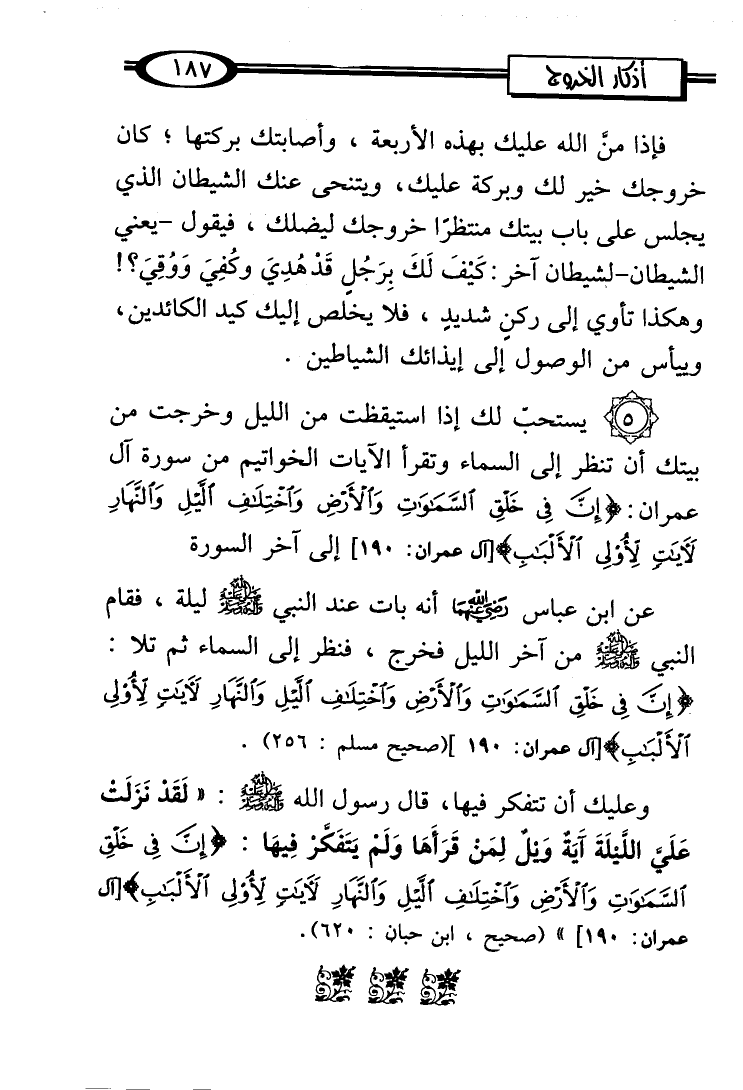 أذكار الخروج
١٨٧
فإذا منَّ الله عليك بهذه الأربعة ، وأصابتك بركتها ؛ كان
خروجك خير لك وبركة عليك، ويتنحى عنك الشيطان الذي
يجلس على باب بيتك منتظرًا خروجك ليضلك ، فيقول -يعني
الشيطان-لشيطان آخر : كَيْفَ لَكَ بِرَجُلٍ قَدْ هُدِيَ وكُفِيَ وَوُقِيَ؟!
وهكذا تأوي إلى ركنٍ شديدٍ ، فلا يخلص إليك كيد الكائدين،
وييأس من الوصول إلى إيذائك الشياطين .
٥ يستحبّ لك إذا استيقظت من الليل وخرجت من
بيتك أن تنظر إلى السماء وتقرأ الآيات الخواتيم من سورة آل
عمران : ﴿إِنَّ فِي خَلْقِ ٱلسَّمَٰوَٰتِ وَٱلْأَرْضِ وَٱخْتِلَٰفِ ٱلَّيْلِ وَٱلنَّهَارِ
لَأٓيَٰتٍ لِّأُو۟لِى ٱلْأَلْبَٰبِ﴾[آل عمران: ١٩٠] إلى آخر السورة
عن ابن عباس رضي الله عنهما أنه بات عند النبي ﷺ ليلة ، فقام
النبي ﷺ من آخر الليل فخرج ، فنظر إلى السماء ثم تلا :
﴿إِنَّ فِي خَلْقِ ٱلسَّمَٰوَٰتِ وَٱلْأَرْضِ وَٱخْتِلَٰفِ ٱلَّيْلِ وَٱلنَّهَارِ لَأٓيَٰتٍ لِّأُو۟لِى
ٱلْأَلْبَٰبِ﴾[آل عمران: ١٩٠ ](صحيح مسلم : ٢٥٦) .
وعليك أن تتفكر فيها، قال رسول الله ﷺ : « لَقَدْ نَزَلَتْ
عَلَيَّ اللَّيْلَةَ آيَةٌ وَيْلٌ لِمَنْ قَرَأَهَا وَلَمْ يَتَفَكَّرْ فِيهَا : ﴿إِنَّ فِي خَلْقِ
ٱلسَّمَٰوَٰتِ وَٱلْأَرْضِ وَٱخْتِلَٰفِ ٱلَّيْلِ وَٱلنَّهَارِ لَأٓيَٰتٍ لِّأُو۟لِى ٱلْأَلْبَٰبِ﴾[آل
عمران: ١٩٠] » (صحيح ، ابن حبان : ٦٢٠).